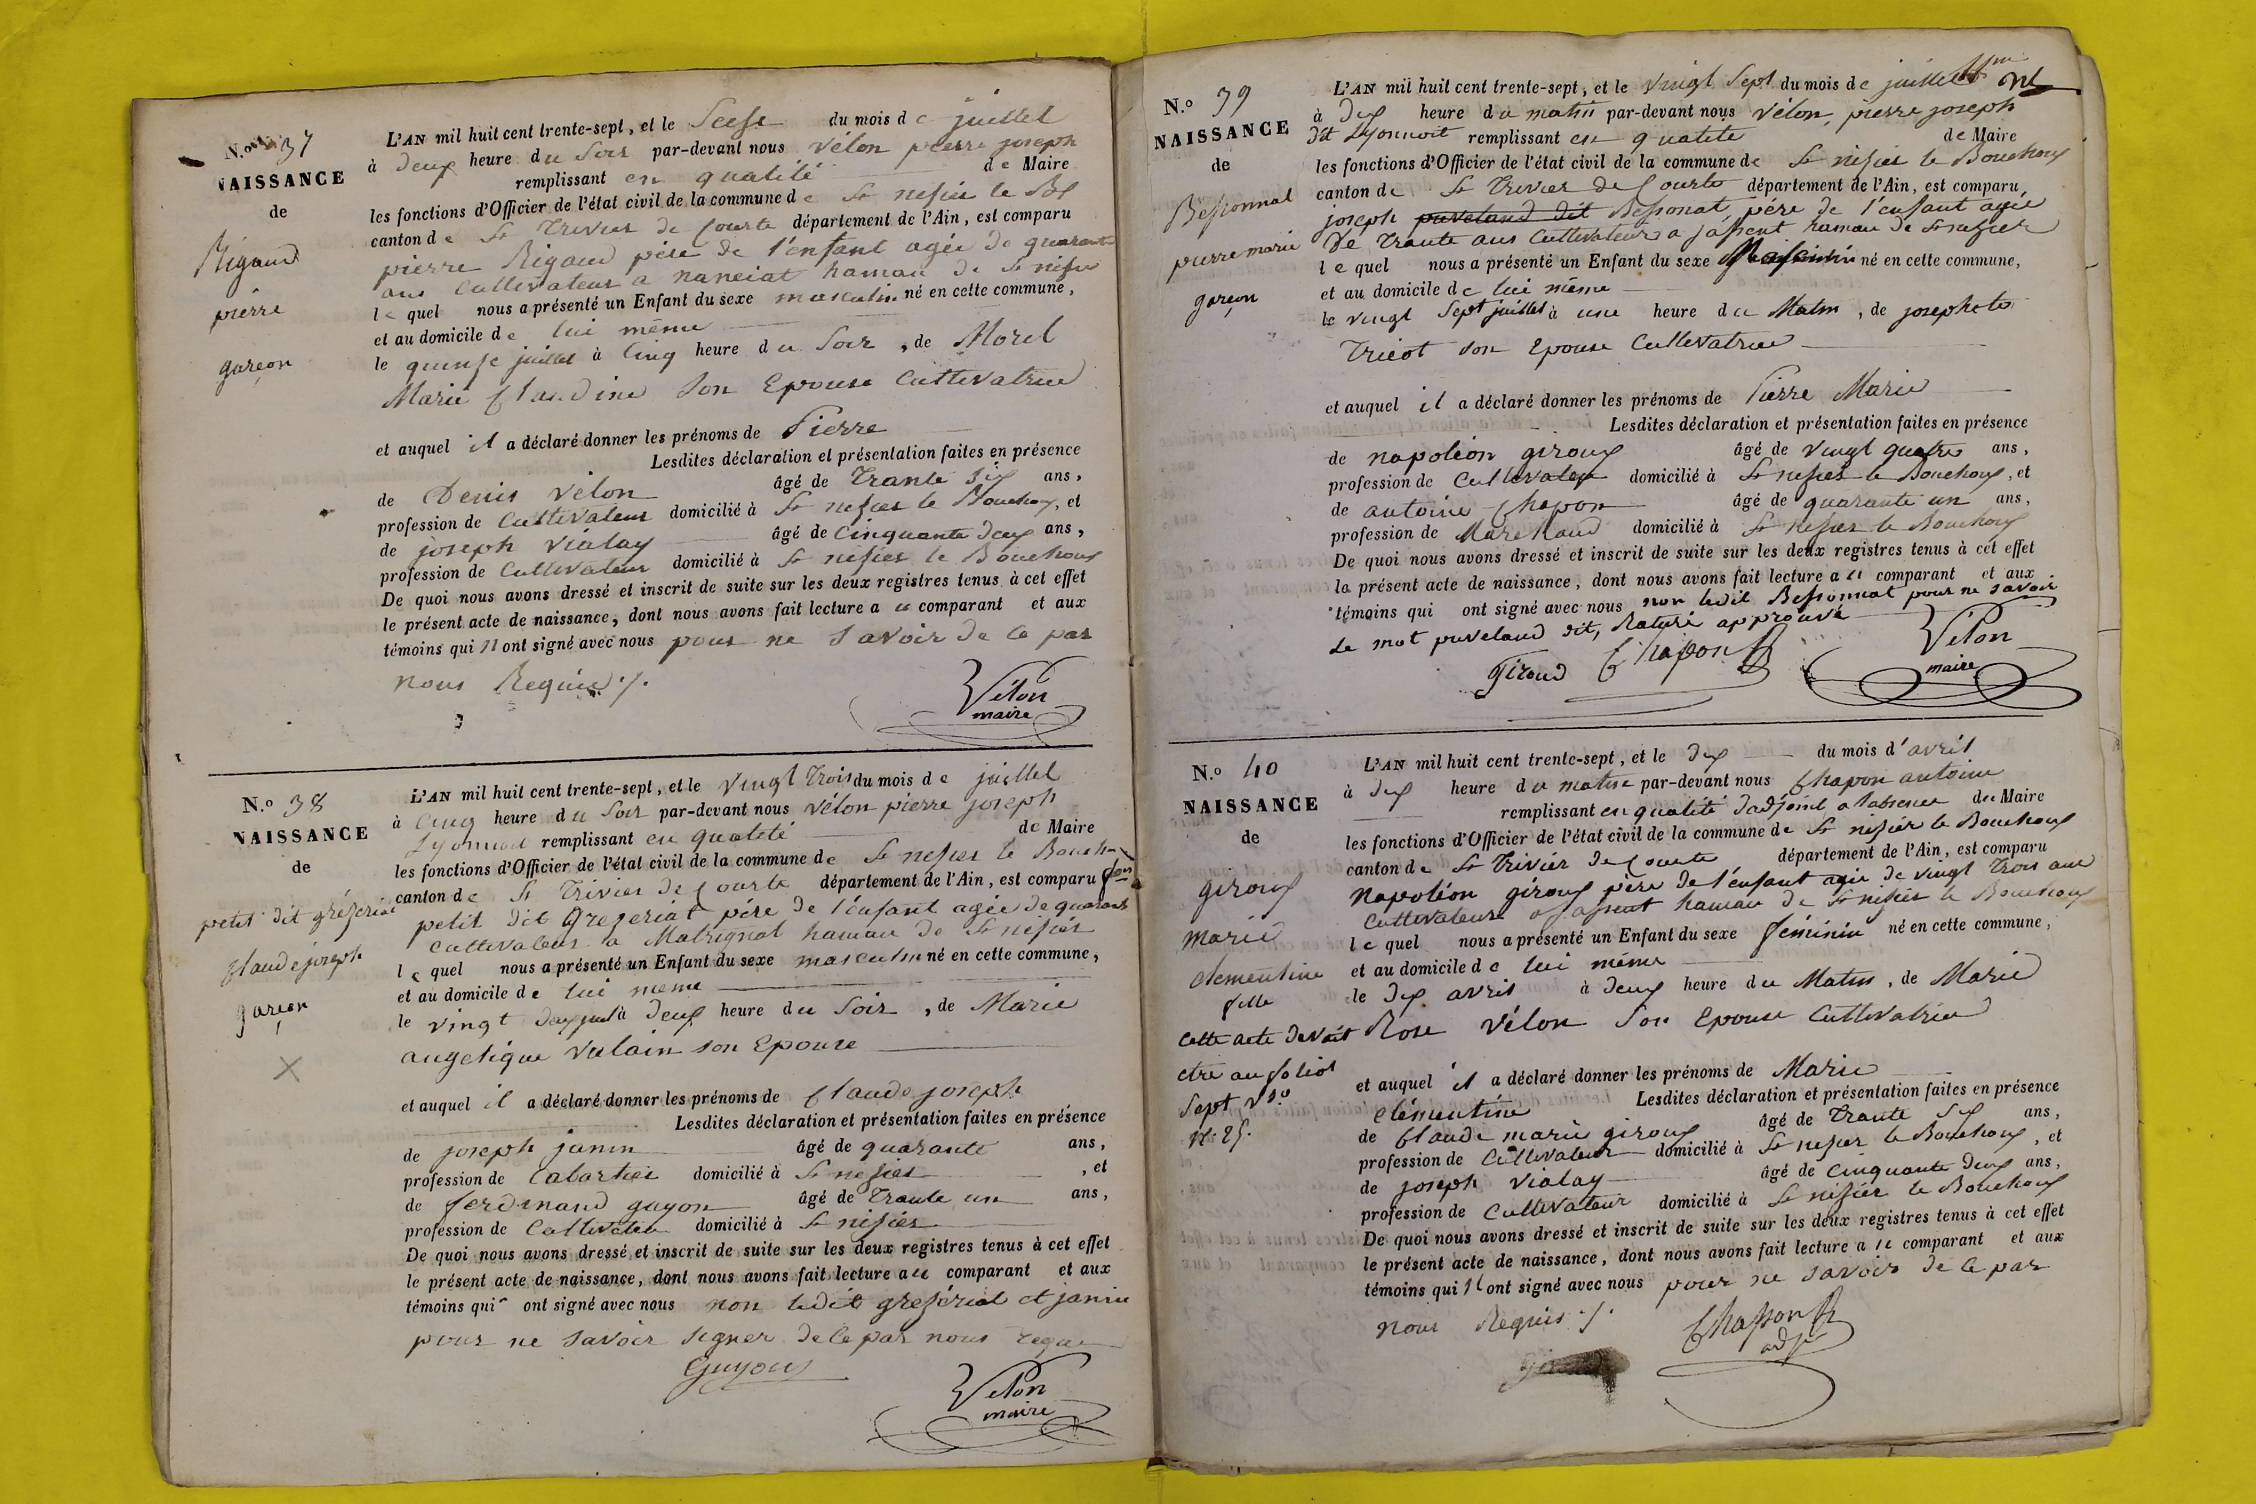 N.o 37
NAISSANCE
de
Rigaud
pierre
garçon
L'AN mil huit cent trente-sept, et le Seise du mois de juillet
à deux heure du Soir par-devant nous Vélon pierre joseph
remplissant en qualité de Maire
les fonctions d'Officier de l'état civil de la commune de St nisier le Bo
canton de St Trivier de Courte département de l'Ain, est comparu
pierre Rigaud père de l'enfant agée de quarante
ans Cultivateur a Nanciat hamau de St nisier
le quel nous a présenté un Enfant du sexe masculin né en cette commune,
et au domicile de lui même
le quinse juillet à Cinq heure du Soir, de Morel
Marie Claudine Son Epouse Cultivatrice
et auquel il a déclaré donner les prénoms de Pierre
Lesdites déclaration et présentation faites en présence
de Denis Velon âgé de Trante Six ans,
profession de Cultivateur domicilié à St nisier le Bouchoux, et
de joseph Vialay âgé de Cinquante deux ans,
profession de Cultivateur domicilié à St nisier le Bouchoux
De quoi nous avons dressé et inscrit de suite sur les deux registres tenus à cet effet
le présent acte de naissance, dont nous avons fait lecture au comparant et aux
témoins qui n ont signé avec nous pour ne Savoir de ce par
nous Requis ./.
Vélon
maire
N.o 38
NAISSANCE
de
petit dit grézeriat
Claude joseph
garçon
X
L'AN mil huit cent trente-sept, et le vingt Trois du mois de juillet
à Cinq heure du Soir par-devant nous Vélon pierre joseph
Lyonnoit remplissant en qualité de Maire
les fonctions d'Officier de l'état civil de la commune de St nisier le Bouch
canton de St Trivier de Courte département de l'Ain, est comparu
petit dit Grezeriat père de l'enfant agée de quarante
Cultivateur a Matrignat hamau de St nisier
le quel nous a présenté un Enfant du sexe masculin né en cette commune,
et au domicile de lui meme
le vingt deux juil à deux heure du Soir, de Marie
angelique Vulain son Epouse
et auquel il a déclaré donner les prénoms de Claude joseph
Lesdites déclaration et présentation faites en présence
de joseph janin âgé de quarante ans,
profession de Cabartier domicilié à St nisier, et
de ferdinand guyon âgé de Trante un ans,
profession de Cultivateur domicilié à St nisier
De quoi nous avons dressé et inscrit de suite sur les deux registres tenus à cet effet
le présent acte de naissance, dont nous avons fait lecture au comparant et aux
témoins qui ont signé avec nous non ledit grezériat et janin
pour ne savoir signer de ce par nous requi
Guyon
Vélon
maire
N.o 39
NAISSANCE
de
Bessonnat
pierre marie
garçon
L'AN mil huit cent trente-sept, et le Vingt Sept du mois de juillet
à dix heure du matin par-devant nous Vélon, pierre joseph
dit Lyonnoit remplissant en qualité de Maire
les fonctions d'Officier de l'état civil de la commune de St nisier le Bouchoux
canton de St Trivier de Courte département de l'Ain, est comparu
joseph puveland dit Bessonat, père de l'enfant agée
De Trante ans Cultivateur a jassent hamau de St nizier
le quel nous a présenté un Enfant du sexe Masculin né en cette commune,
et au domicile de lui même
le vingt Sept juillet à une heure du Matin, de josephete
Tricot son Epouse Cultivatrice
et auquel il a déclaré donner les prénoms de Pierre Marie
Lesdites déclaration et présentation faites en présence
de napoléon giroux âgé de vingt quatre ans,
profession de Cultivateur domicilié à St nisier le Bouchoux, et
de antoine Chapon âgé de quarante un ans,
profession de Marchand domicilié à St nisier le Bouchoux
De quoi nous avons dressé et inscrit de suite sur les deux registres tenus à cet effet
la présent acte de naissance, dont nous avons fait lecture au comparant et aux
témoins qui ont signé avec nous non ledit Bessonnat pour ne savoir
Le mot puveland dit, Raturé approuvé
Giroud Chapon
Vélon
maire
N.o 40
NAISSANCE
de
giroux
Marie
clementine
fille
Cette acte devoit
etre au foliot
Sept Vso
N: 25.
L'AN mil huit cent trente-sept, et le dix du mois d'avril
à dix heure du matin par-devant nous Chapon antoine
remplissant en qualité d'adjoint a l'absence du Maire
les fonctions d'Officier de l'état civil de la commune de St nizier le Bouchoux
canton de St Trivier de Courte département de l'Ain, est comparu
Napoléon giroux père de l'enfant agée de vingt Trois ans
Cultivateur a jassent hamau de St nisier le Bouchoux
le quel nous a présenté un Enfant du sexe féminin né en cette commune,
et au domicile de lui même
le dix avril à deux heure du Matin, de Marie
Rose Vélon Son Epouse Cultivatrice
et auquel il a déclaré donner les prénoms de Marie
Clémentine Lesdites déclaration et présentation faites en présence
de Claude marie giroux âgé de Trante Six ans,
profession de Cultivateur domicilié à St nisier le Bouchoux, et
de joseph Vialay âgé de Cinquante deux ans,
profession de Cultivateur domicilié à St nisier le Bouchoux
De quoi nous avons dressé et inscrit de suite sur les deux registres tenus à cet effet
le présent acte de naissance, dont nous avons fait lecture au comparant et aux
témoins qui n ont signé avec nous pour ne savoir de ce par
nous Requis ./.
Chapon
adj